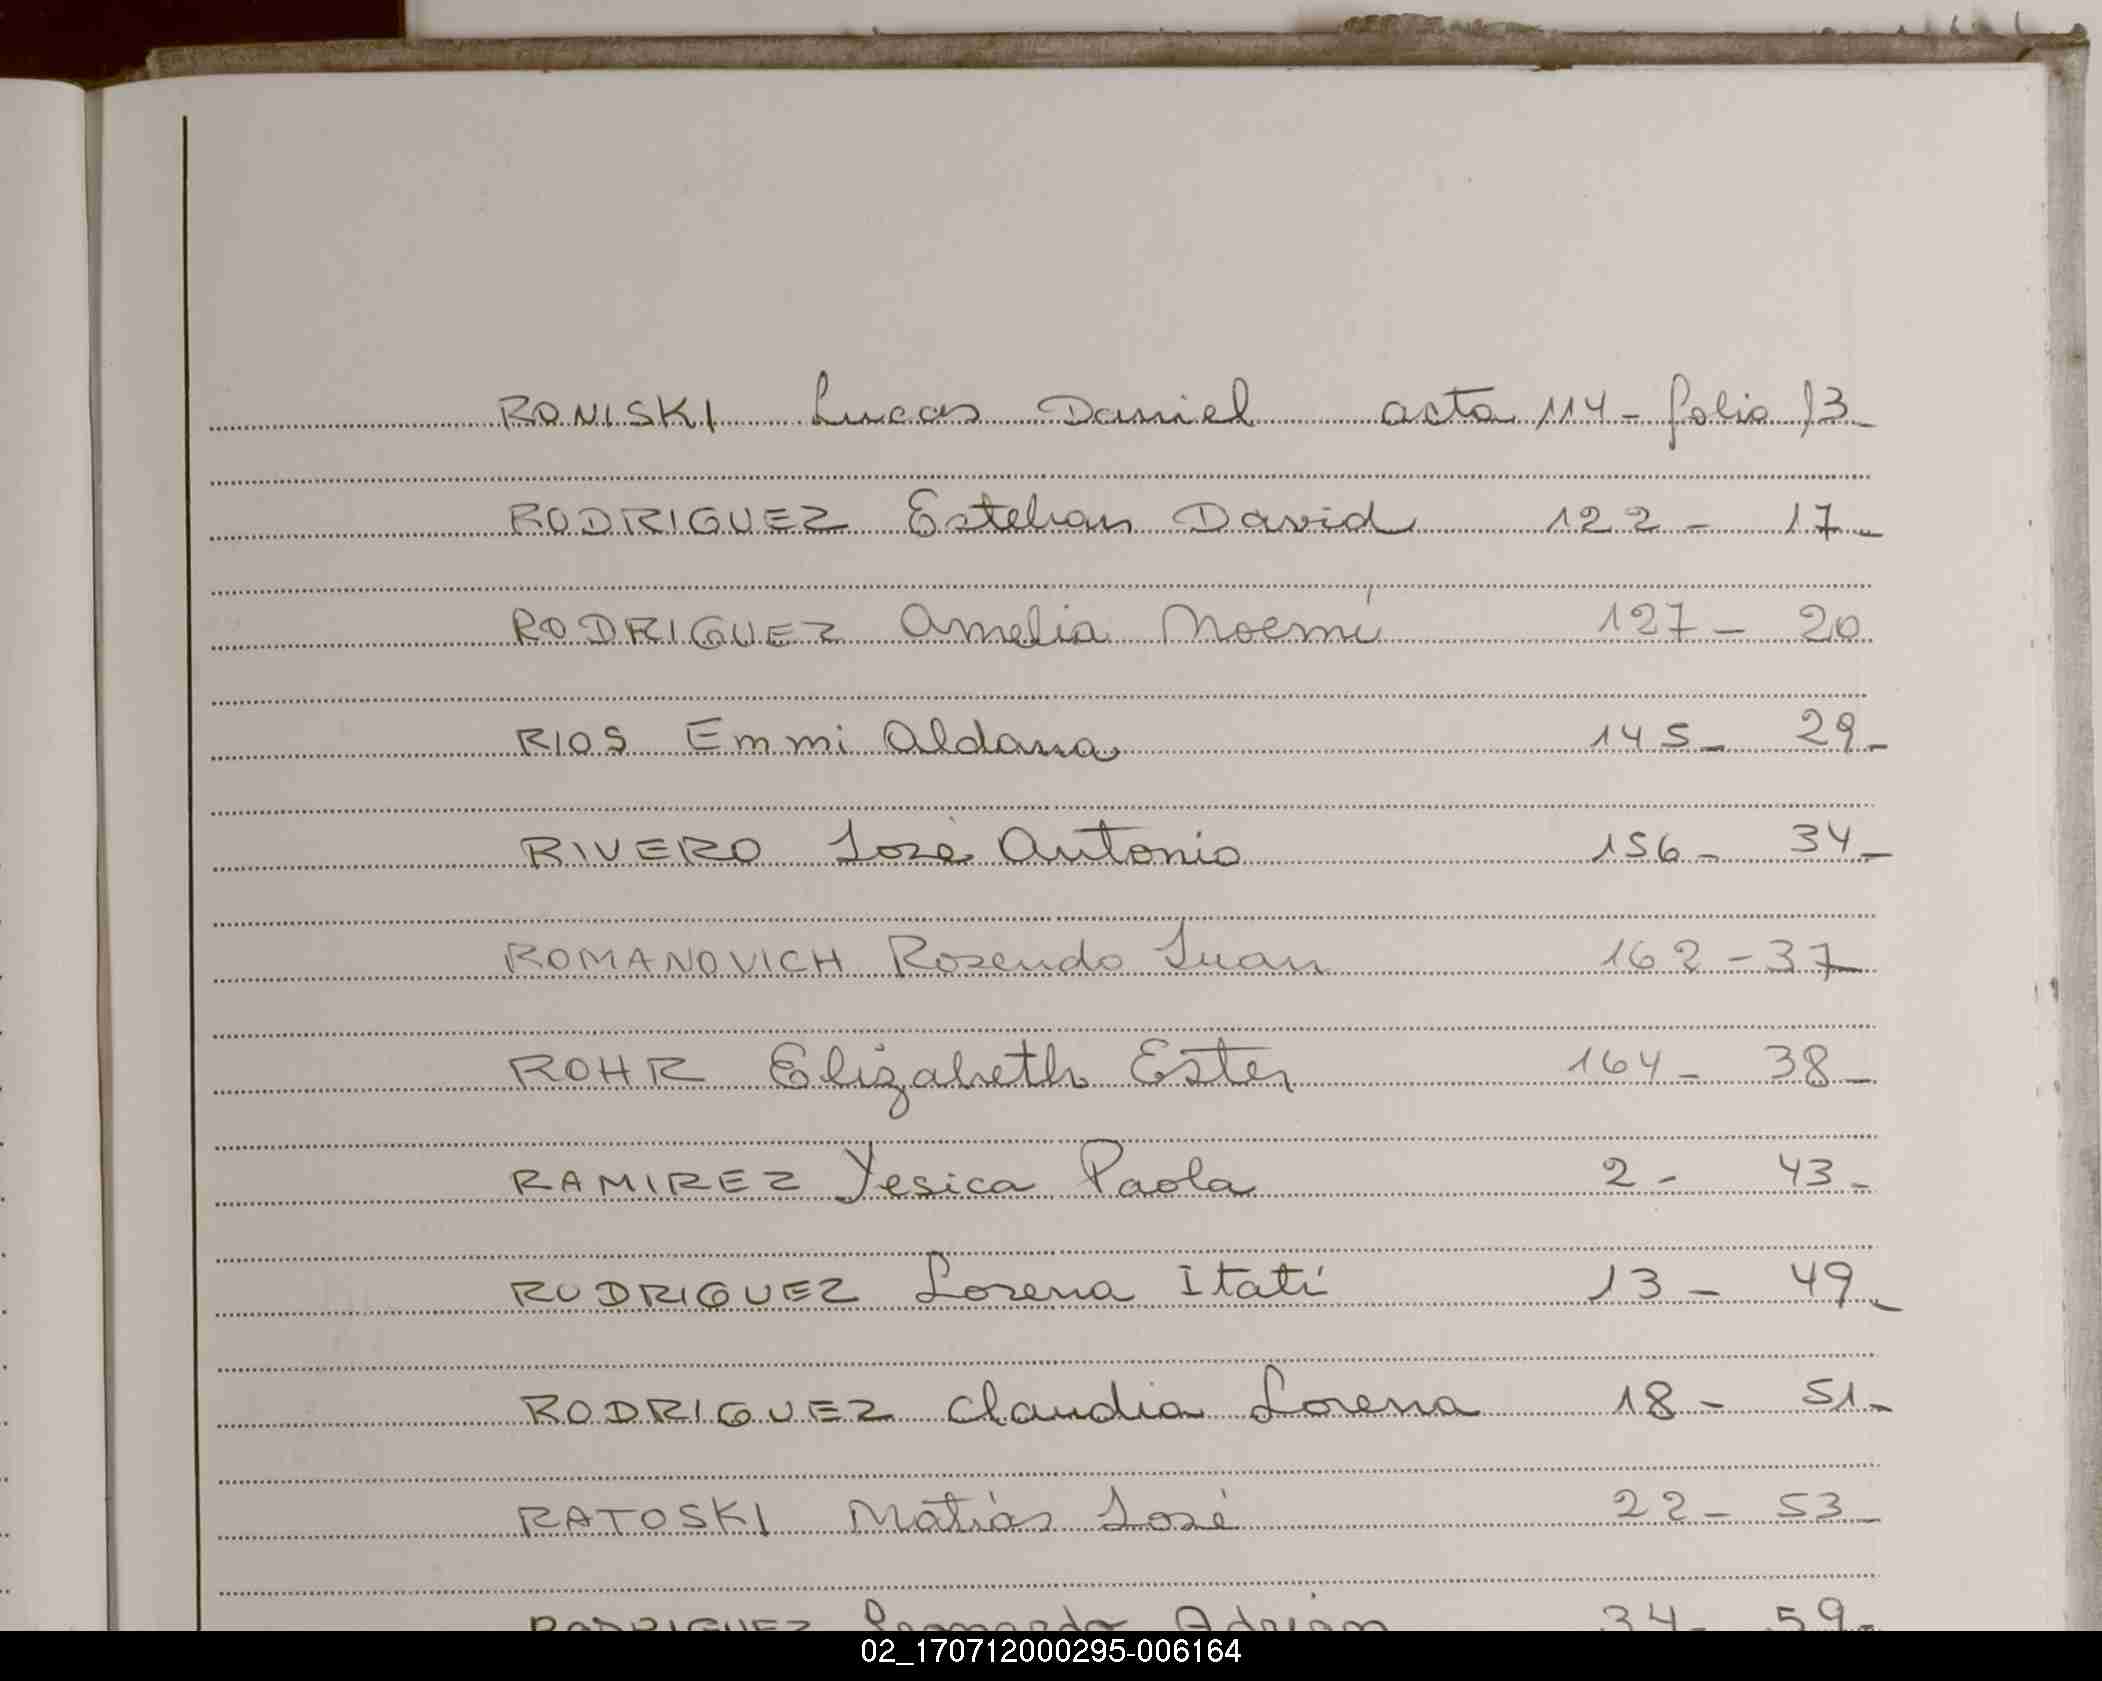 RONISKI Lucas Daniel acta 114 - folio 13 -
RODRIGUEZ Esteban David 122 - 17 -
RODRIGUEZ Amelia Noemí 127 - 20
RIOS Emmi Aldana 145 - 29 -
RIVERO José Antonio 156 - 34 -
ROMANOVICH Rosendo Juan 162 - 37 -
ROHR Elizabeth Ester 164 - 38 -
RAMIREZ Yesica Paola 2 - 43 -
RODRIGUEZ Lorena Itatí 13 - 49 -
RODRIGUEZ Claudia Lorena 18 - 51 -
RATOSKI Matías José 22 - 53 -
RODRIGUEZ Leonardo Adrián 34 - 59 -
02_170712000295-006164